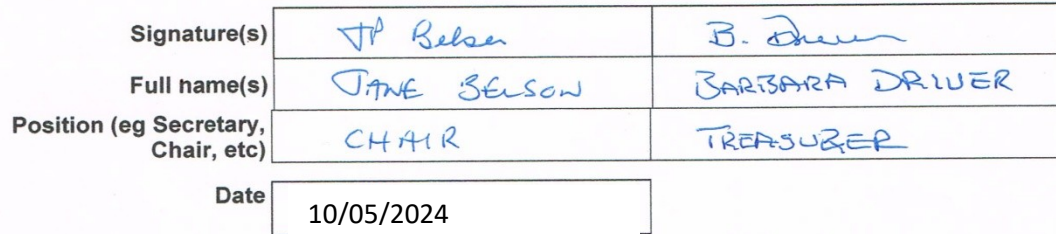 Signature(s) JP Belson B. Driver
Full name(s) JANE BELSON BARBARA DRIVER
Position (eg Secretary, Chair, etc) CHAIR TREASURER
Date 10/05/2024